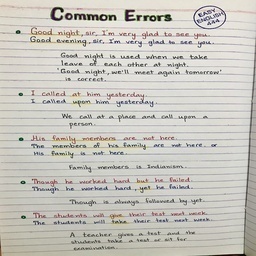 Common Errors
EASY ENGLISH 444
Good night, sir, I'm very glad to see you.
Good evening, sir, I'm very glad to see you.
Good night is used when we take
leave of each other at night.
'Good night, we'll meet again tomorrow'
is correct.
I called at him yesterday.
I called upon him yesterday.
We call at a place and call upon a
person.
His family members are not here.
The members of his family are not here. or
His family is not here.
Family members is Indianism.
Though he worked hard but he failed.
Though he worked hard, yet he failed.
Though is always followed by yet.
The students will give their test next week.
The students will take their test next week.
A teacher gives a test and the
students take a test or sit for
examination.